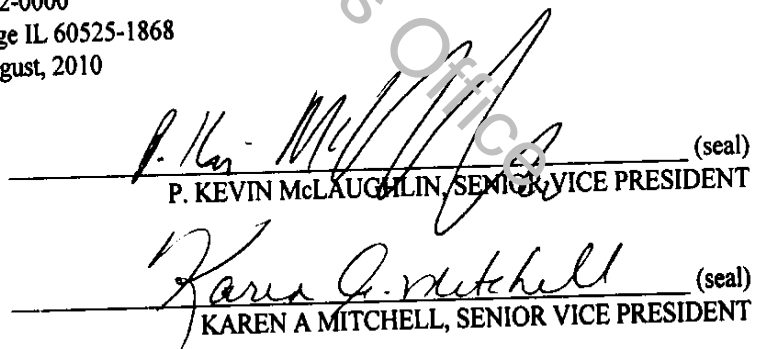 2-0000
ge IL 60525-1868
gust, 2010
s Office
P. Kevin McLaughlin (seal)
P. KEVIN McLAUGHLIN, SENIOR VICE PRESIDENT
Karen A. Mitchell (seal)
KAREN A MITCHELL, SENIOR VICE PRESIDENT